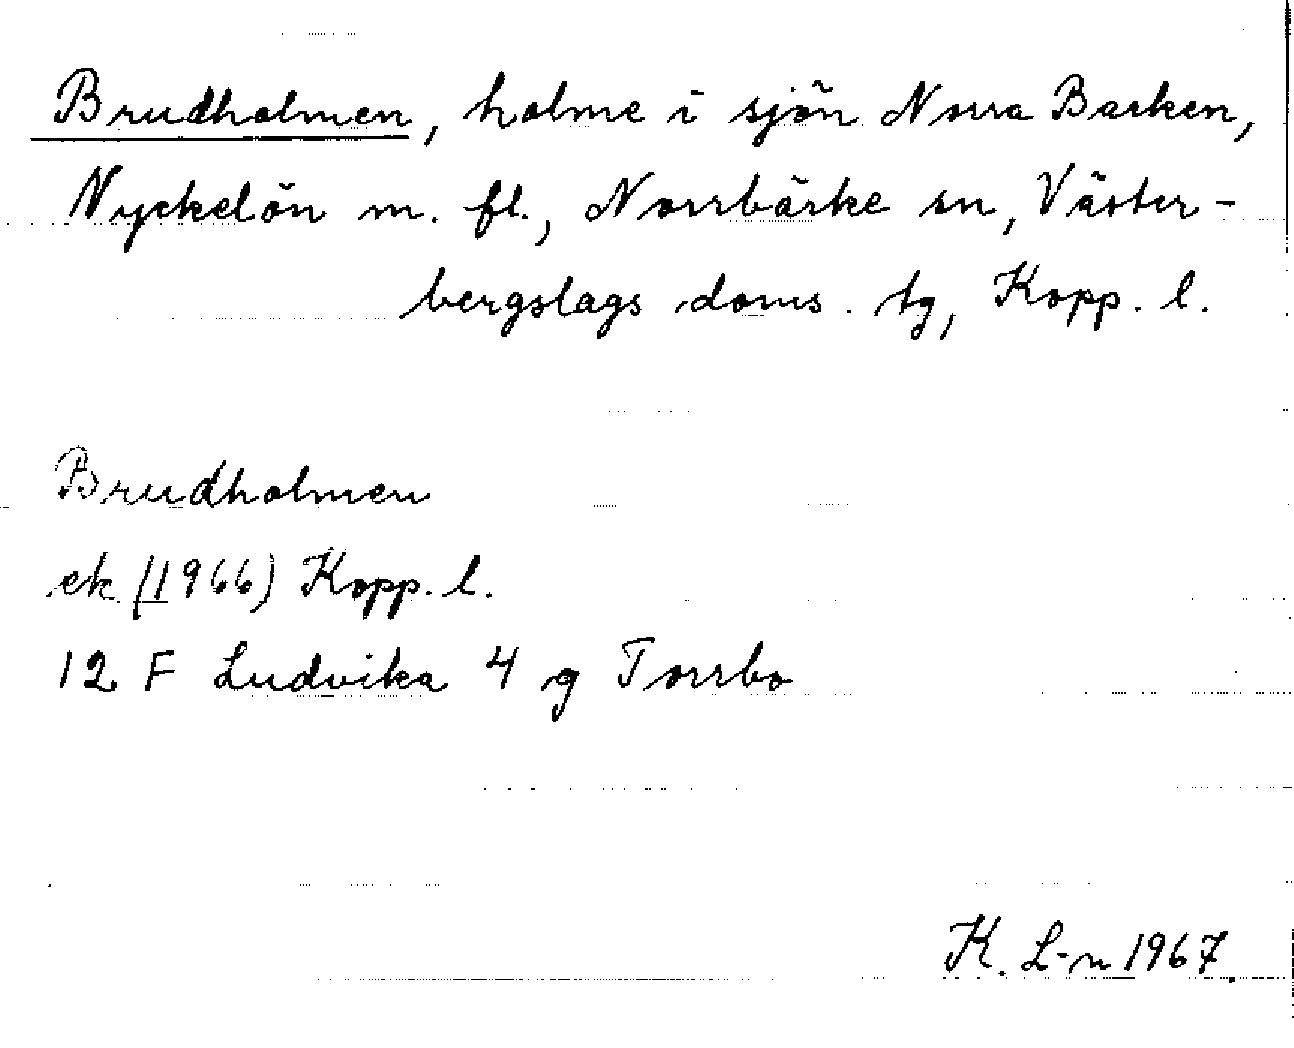 Brudholmen, holme i sjön Norra Barken,
Nyckelön m. fl., Norrbärke sn, Väster-
bergslags doms. tg, Kopp. l.
Brudholmen
ek (1966) Kopp. l.
12 F Ludvika 4 g Torrbo
K. L-n 1967.